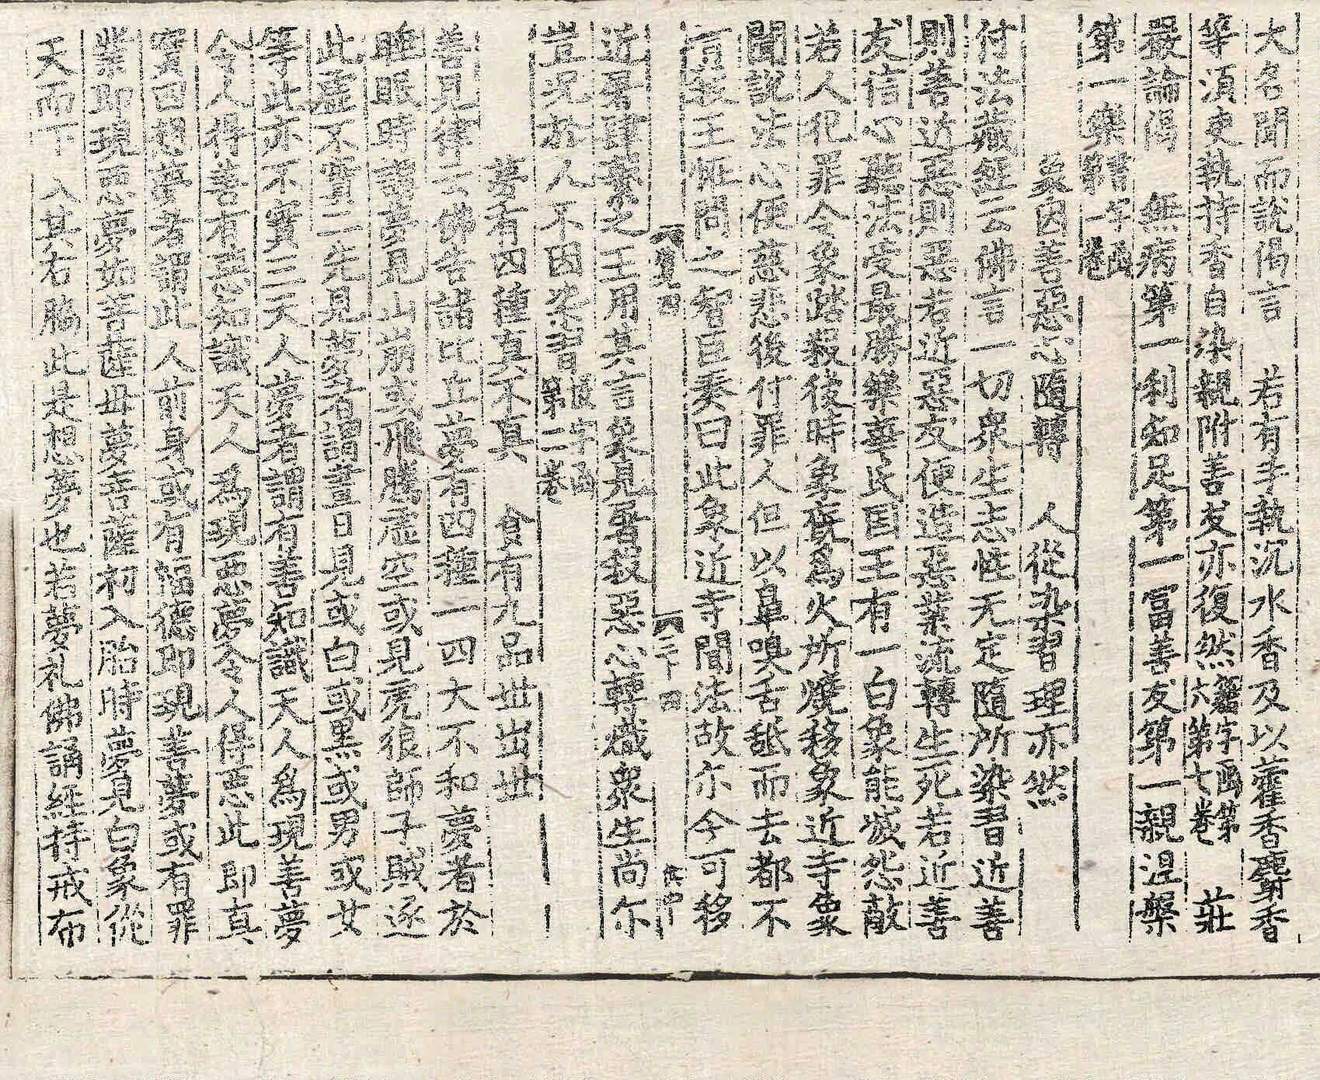 大名聞而說偈言　若有手執沉水香及以藿香麝香
等湏臾執持香自染親附善友亦復然 字函第六第七卷　莊
嚴論偈　無病第一利知足第一冨善友第一親涅槃
第一樂 書字函第一卷
象因善惡心隨轉　人從染習理亦然
付法藏經云佛言一切衆生志性无定隨所染習近善
則善近惡則惡若近惡友便造惡業流轉生死若近善
友信心聽法受最勝樂華氏国王有一白象能滅怨敵
若人犯罪令象踏殺後時象廐爲火所燒移象近寺象
聞說法心便慈悲後付罪人但以鼻嗅舌舐而去都不
言殺王恠問之智臣奏曰此象近寺聞法故尓今可移
寳四　二十四
近屠肆養之王用其言象見屠殺惡心轉熾衆生尚尓
豈况於人不因染習 字函第二卷
夢有四種真不真　食有九品世出世
善見律云佛告諸比丘夢有四種一四大不和夢者於
睡眠時謂夢見山崩或飛騰虚空或見虎狼師子賊逐
此虚不實二先見夢者謂晝日見或白或黑或男或女
等此亦不實三天人夢者謂有善知識天人爲現善夢
令人得善有惡知識天人爲現惡夢令人得惡此即真
實四想夢者謂此人前身或有福德即現善夢或有罪
業即現惡夢如菩薩母夢菩薩初入胎時夢見白象從
天而下　入其右脇此是想夢也若夢礼佛誦經持戒布